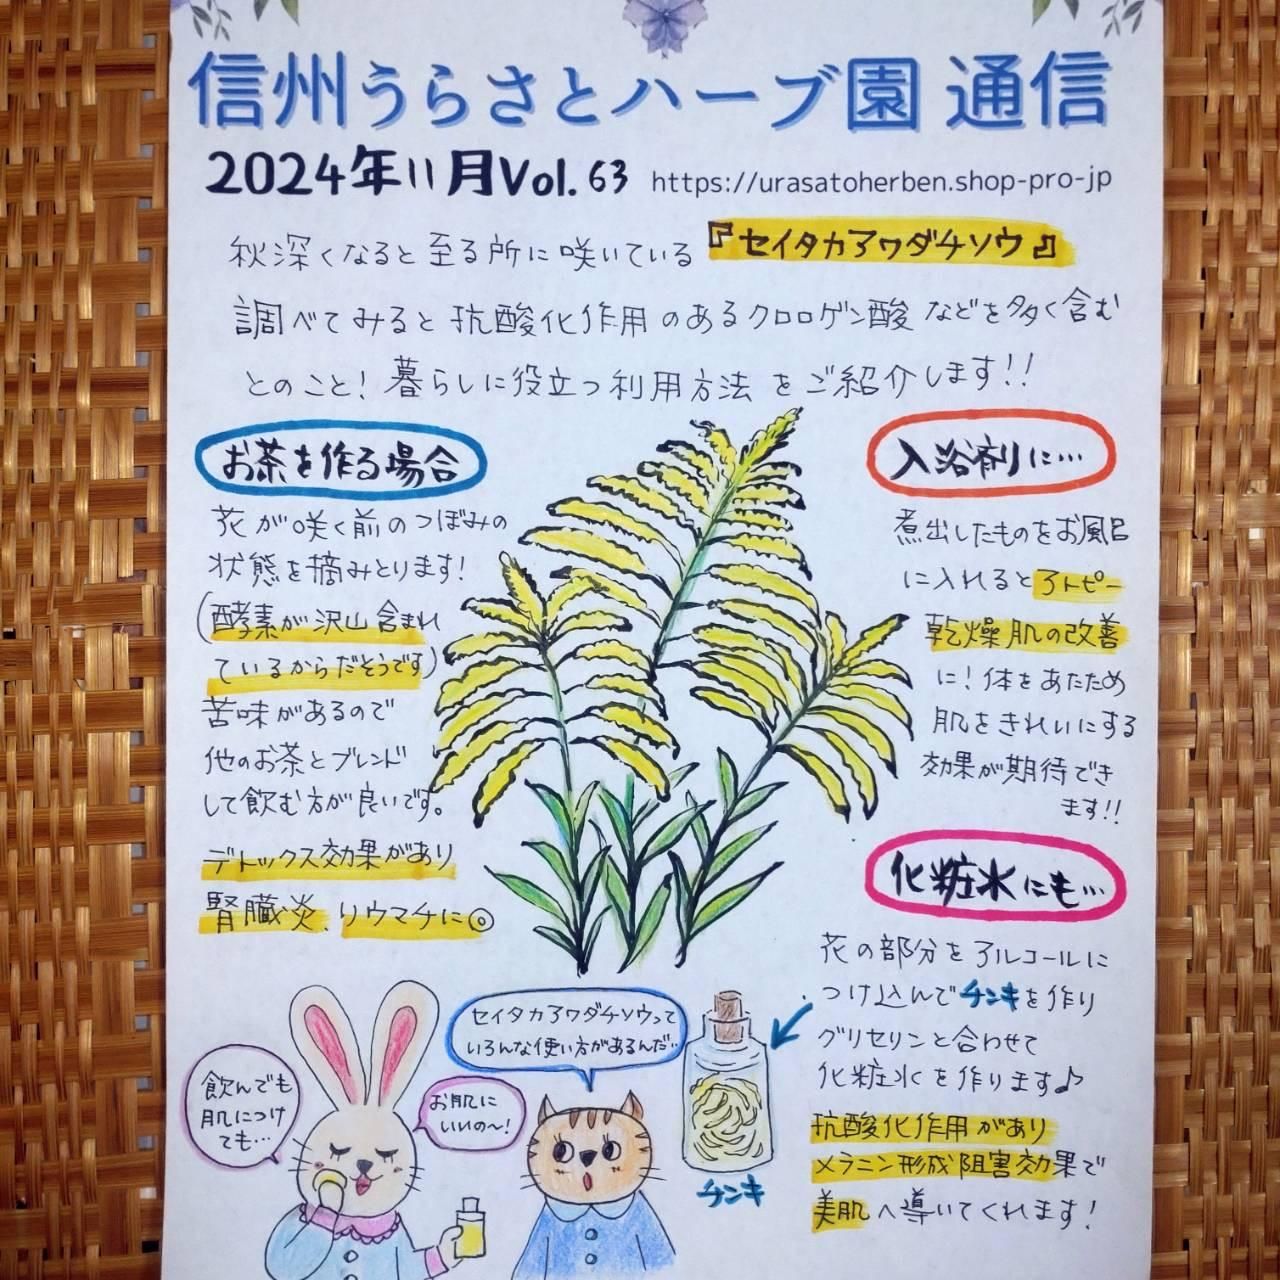 信州うらさとハーブ園 通信
2024年11月Vol.63 https://urasatoherben.shop-pro-jp
秋深くなると至る所に咲いている『セイタカアワダチソウ』
調べてみると抗酸化作用のあるクロロゲン酸などを多く含む
とのこと！暮らしに役立つ利用方法をご紹介します!!
お茶を作る場合
花が咲く前のつぼみの
状態を摘みとります！
(酵素が沢山含まれ
ているからだそうです)
苦味があるので
他のお茶とブレンド
して飲む方が良いです。
デトックス効果があり
腎臓炎、リウマチに◎
入浴剤に…
煮出したものをお風呂
に入れるとアトピー
乾燥肌の改善
に！体をあたため
肌をきれいにする
効果が期待でき
ます!!
化粧水にも…
花の部分をアルコールに
つけ込んでチンキを作り
グリセリンと合わせて
化粧水を作ります♪
抗酸化作用があり
メラニン形成阻害効果で
美肌へ導いてくれます！
飲んでも
肌につけ
ても…
お肌に
いいの〜！
セイタカアワダチソウって
いろんな使い方があるんだ…
チンキ